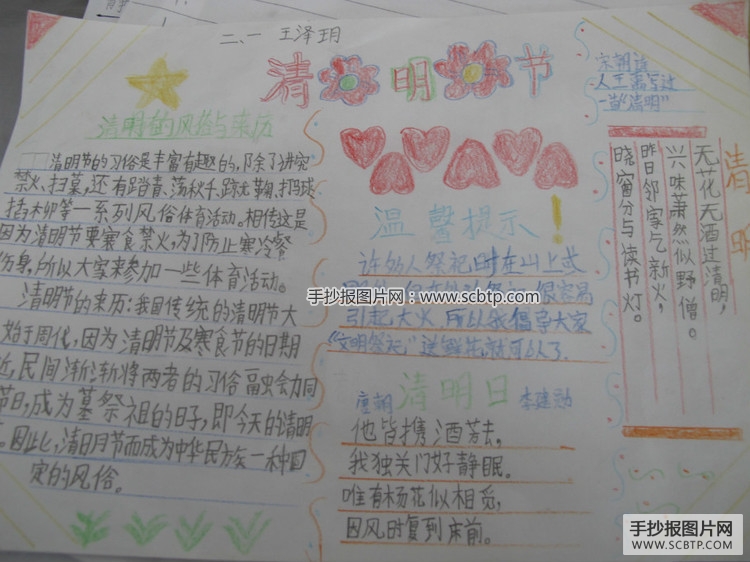 二、一 王泽玥
清明节
清明的风俗与来历
清明节的习俗是丰富有趣的,除了讲究
禁火、扫墓,还有踏青、荡秋千、蹴鞠、打马球
插柳等一系列风俗体育活动。相传这是
因为清明节要寒食禁火,为了防止寒冷餐
伤身,所以大家来参加一些体育活动。
清明节的来历:我国传统的清明节大
始于周代,因为清明节及寒食节的日期
近,民间渐渐将两者的习俗融会力同
节日,成为墓祭祖的日子,即今天的清明
。因此匕,清明节而成为中华民族一种固
定的风俗。
温馨提示!
许多人祭祀时在山上或
很容易
引起大火,所以我倡导大家
“文明祭祀”送鲜花就可以了。
手抄报图片网:www.scbtp.com
清明日
唐朝 李建勋
他皆携酒芳去,
我独关门好静眠。
唯有杨花似相觅,
因风时复到床前。
宋朝诗
人王禹写过
一首“清明”
清明
无花无酒过清明,
兴味萧然似野僧。
昨日邻家乞新火,
晓窗分与读书灯。
手抄报图片网
WWW.SCBTP.COM